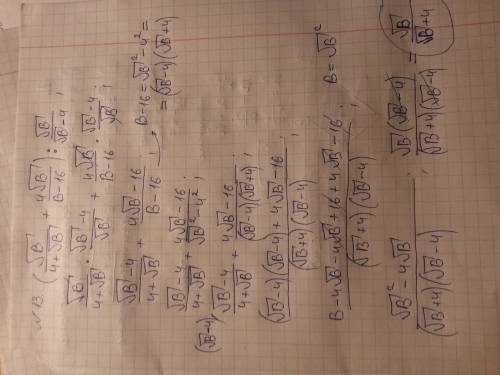 № 13. (√B / (4+√B) + 4√B / (B-16)) : √B / (√B-4) ;
√B / (4+√B) · (√B-4) / √B + 4√B / (B-16) · (√B-4) / √B ;
(√B-4) / (4+√B) + (4√B-16) / (B-16) ;
B-16 = √B² - 4² =
= (√B-4)(√B+4)
(√B-4) / (4+√B) + (4√B-16) / (√B²-4²) ;
(√B-4) (√B-4) / (4+√B) + (4√B-16) / ((√B-4)(√B+4)) ;
((√B-4)(√B-4) + 4√B-16) / ((√B+4)(√B-4)) ;
(B-4√B-4√B+16+4√B-16) / ((√B+4)(√B-4)) ;
B = √B²
(√B²-4√B) / ((√B+4)(√B-4)) ; √B(√B-4) / ((√B+4)(√B-4)) = √B / (√B+4)